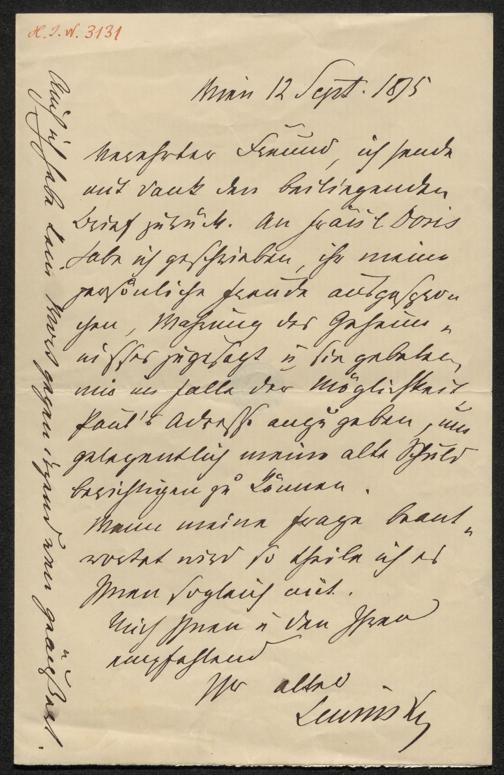 H. I. N. 3131
Wien 12 Sept. 1875
Verehrter Freund, ich sende
mit Dank den beiliegenden
Brief zurück. An Fräul Doris
habe ich geschrieben, ihr meine
persönliche Freude ausgespro
chen, Wahrung des Geheim-
nisses zugesagt u sie gebeten,
mir im Falle der Möglichkeit,
Paul's Adresse anzugeben, um
gelegentlich meine alte Schuld
berichtigen zu können.
Wenn meine Frage beant-
wortet wird so theile ich es
Ihnen sogleich mit.
Mich Ihnen u den Ihren
empfehlend
Ihr alter
Lewinsky
Auch ich habe kein Wort gegen irgend wen geäußert.